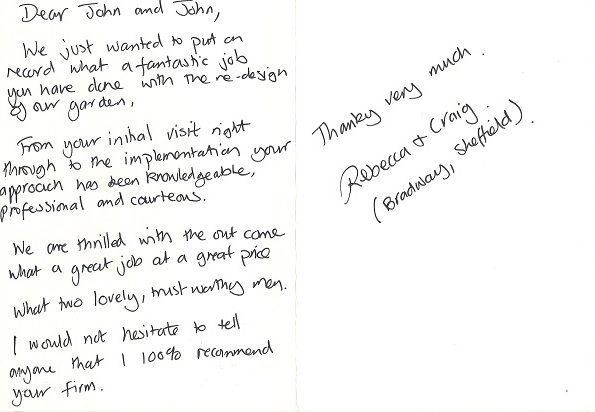 Dear John and John,
We just wanted to put on
record what a fantastic job
you have done with the re-design
of our garden,
From your initial visit right
through to the implementation your
approach has been knowledgeable,
professional and courteous.
We are thrilled with the out come
what a great job at a great price
What two lovely, trust worthy men.
I would not hesitate to tell
anyone that I 100% recommend
your firm.
Thanks very much.
Rebecca & Craig.
(Bradway, Sheffield).